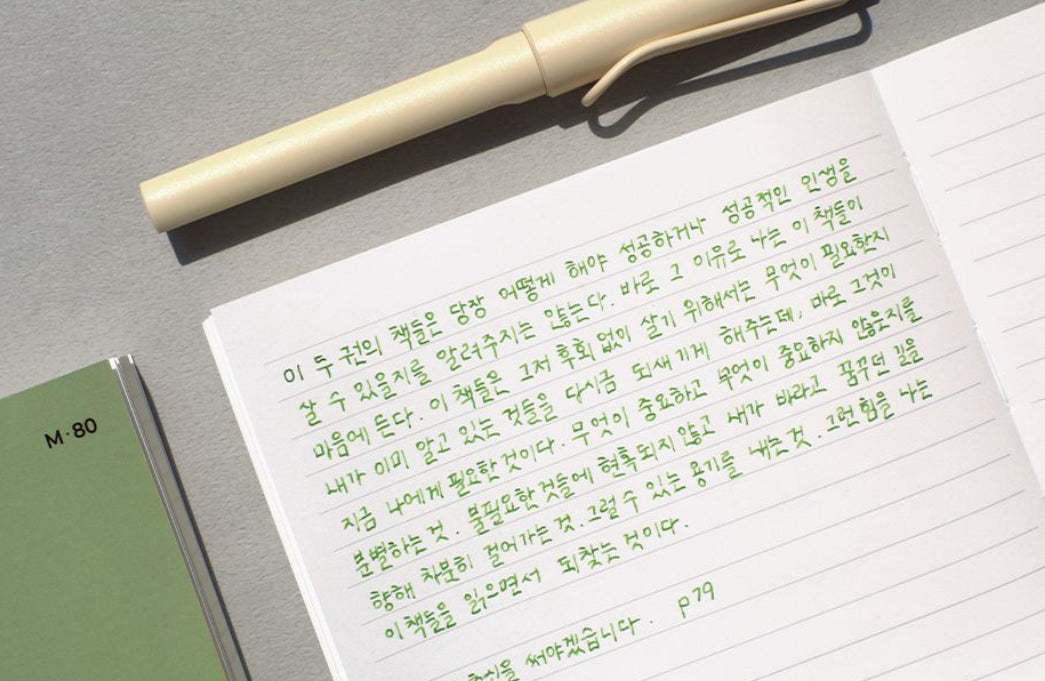 M·80
이 두 권의 책들은 당장 어떻게 해야 성공하거나 성공적인 인생을
살 수 있을지를 알려주지는 않는다. 바로 그 이유로 나는 이 책들이
마음에 든다. 이 책들은 그저 후회 없이 살기 위해서는 무엇이 필요한지
내가 이미 알고 있는 것들을 다시금 되새기게 해주는데, 바로 그것이
지금 나에게 필요한 것이다. 무엇이 중요하고 무엇이 중요하지 않은지를
분별하는 것. 불필요한 것들에 현혹되지 않고 내가 바라고 꿈꾸던 길을
향해 차분히 걸어가는 것. 그럴 수 있는 용기를 내는 것. 그런 힘을 나는
이 책들을 읽으면서 되찾는 것이다.
써야겠습니다. p79